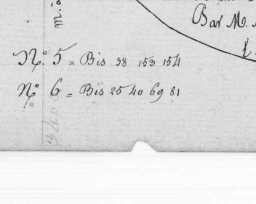 m.
Bar M.
N° 5 = Bis 38 153 154
N° 6 = Bis 25 40 69 81